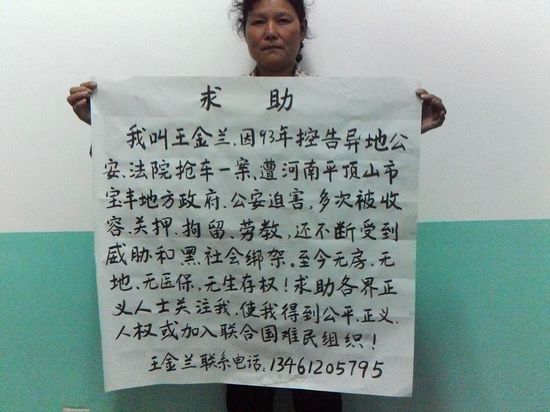 求 助
我叫王金兰.因93年控告异地公
安.法院抢车一案、遭河南平顶山市
宝丰地方政府.公安迫害,多次被收
容.关押.拘留.劳教,还不断受到
威胁和黑社会绑架。至今无房.无
地.无医保.无生存权!求助各界正
义人士关注我,使我得到公平.正义.
人权或加入联合国难民组织!
王金兰联系电话:13461205795